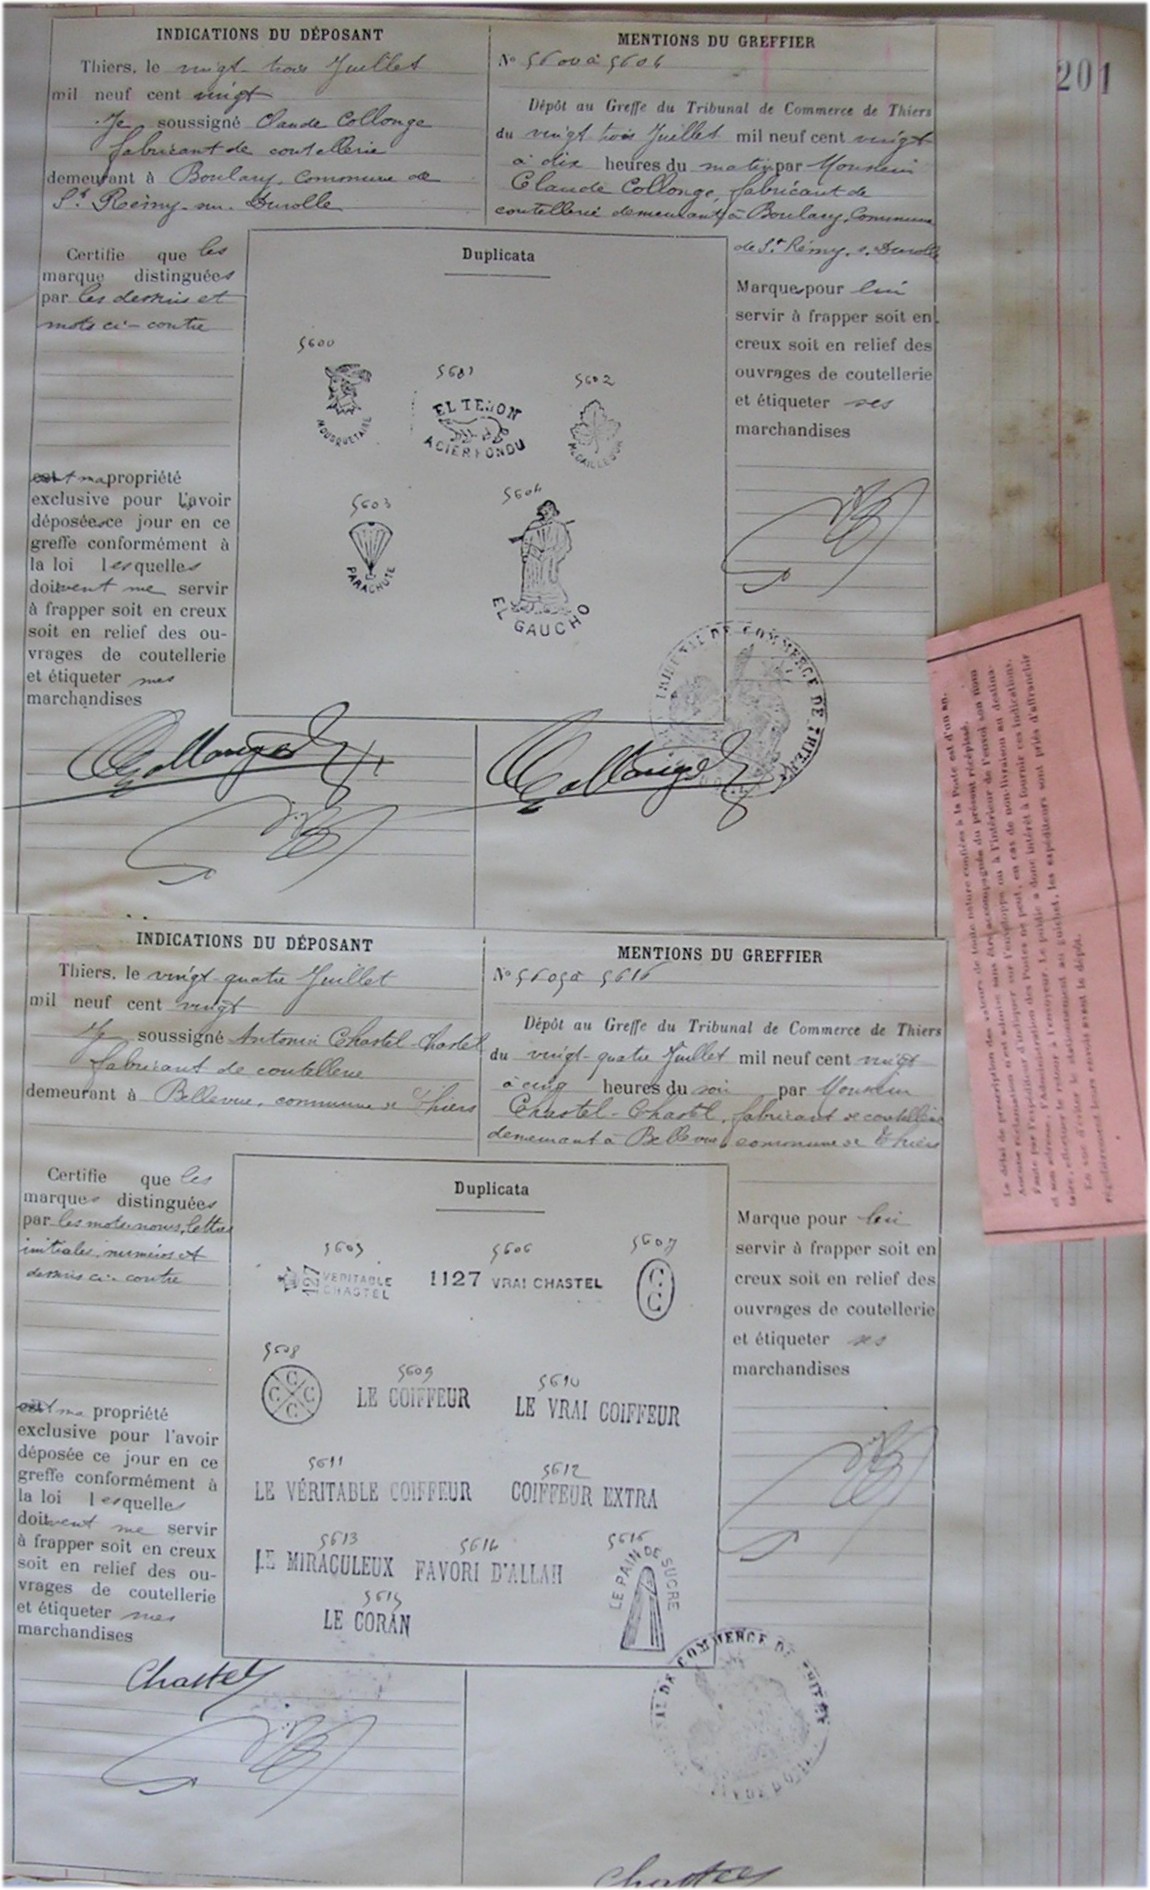 INDICATIONS DU DÉPOSANT
Thiers, le vingt-trois Juillet
mil neuf cent vingt
Je soussigné Claude Collonge
fabricant de coutellerie
demeurant à Boulary, commune de
St Rémy-sur-Durolle
MENTIONS DU GREFFIER
No 5600 à 5604
Dépôt au Greffe du Tribunal de Commerce de Thiers
du vingt trois Juillet mil neuf cent vingt
à dix heures du matin par Monsieur
Claude Collonge, fabricant de
coutellerie demeurant à Boulary, Commune
de St Rémy. s. Durolle
201
Certifie que les
marque distinguées
par les dessins et
mots ci-contre
ma propriété
exclusive pour l'avoir
déposées ce jour en ce
greffe conformément à
la loi lesquelles
doivent me servir
à frapper soit en creux
soit en relief des ou-
vrages de coutellerie
et étiqueter mes
marchandises
Duplicata
5600
MOUSQUETAIRE
5601
EL TEJON
ACIER FONDU
5602
5603
PARACHUTE
5604
EL GAUCHO
Marques pour lui
servir à frapper soit en
creux soit en relief des
ouvrages de coutellerie
et étiqueter ses
marchandises
TRIBUNAL DE COMMERCE DE THIERS
Collonge
Collonge
INDICATIONS DU DÉPOSANT
Thiers, le vingt-quatre Juillet
mil neuf cent vingt
Je soussigné Antonin Chastel-Chastel
fabricant de coutellerie
demeurant à Bellevue, commune de Thiers
MENTIONS DU GREFFIER
No 5605 à 5616
Dépôt au Greffe du Tribunal de Commerce de Thiers
du vingt-quatre Juillet mil neuf cent vingt
à cinq heures du soir par Monsieur
Chastel-Chastel, fabricant de coutellerie
demeurant à Bellevue, commune de Thiers
Certifie que les
marques distinguées
par les mots, noms, lettres
initiales, numéros et
dessins ci-contre
ma propriété
exclusive pour l'avoir
déposée ce jour en ce
greffe conformément à
la loi lesquelles
doivent me servir
à frapper soit en creux
soit en relief des ou-
vrages de coutellerie
et étiqueter mes
marchandises
Duplicata
5605
127 VERITABLE
CHASTEL
5606
1127 VRAI CHASTEL
5607
C
C
5608
C
C C
C
5609
LE COIFFEUR
5610
LE VRAI COIFFEUR
5611
LE VÉRITABLE COIFFEUR
5612
COIFFEUR EXTRA
5613
LE MIRACULEUX
5614
FAVORI D'ALLAH
5615
LE CORAN
5616
LE PAIN DE SUCRE
Marque pour lui
servir à frapper soit en
creux soit en relief des
ouvrages de coutellerie
et étiqueter ses
marchandises
TRIBUNAL DE COMMERCE DE THIERS
Chastel
Chastel
Le délai de prescription des valeurs de toute nature confiées à la Poste est d'un an.
Aucune réclamation n'est admise sans être accompagnée du présent récépissé.
Faute par l'expéditeur d'indiquer sur l'enveloppe ou à l'intérieur de l'envoi son nom
et son adresse, l'Administration des Postes ne peut, en cas de non-livraison au destina-
taire, effectuer le retour à l'envoyeur. Le public a donc intérêt à fournir ces indications.
En vue d'éviter le stationnement au guichet, les expéditeurs sont priés d'affranchir
régulièrement leurs envois avant le dépôt.